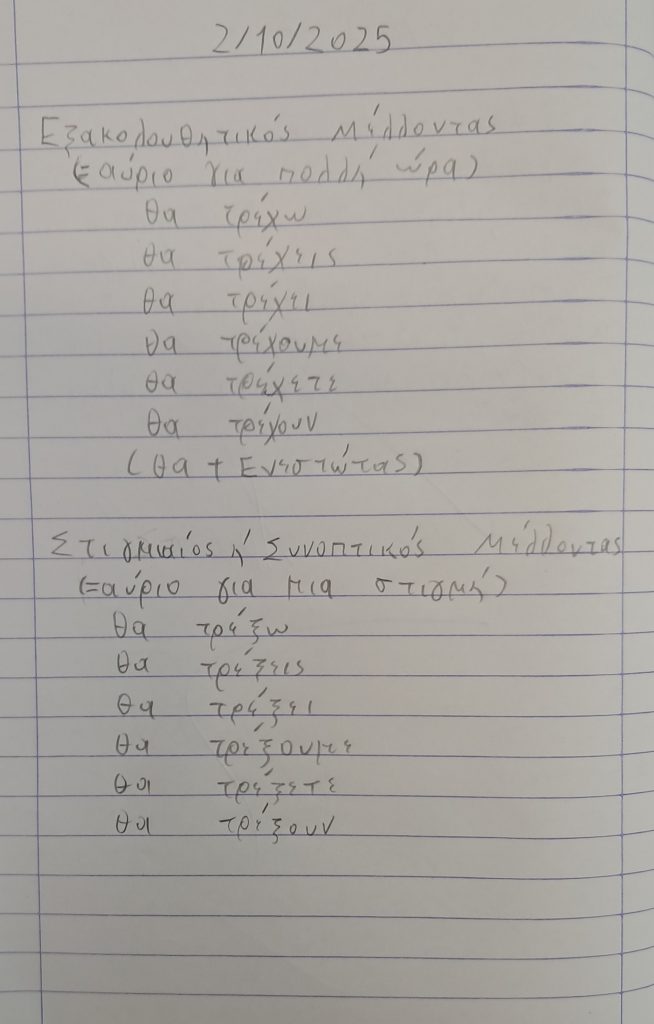 2/10/2025
Εξακολουθητικός Μέλλοντας
(=αύριο για πολλή ώρα)
θα τρέχω
θα τρέχεις
θα τρέχει
θα τρέχουμε
θα τρέχετε
θα τρέχουν
(θα + Ενεστώτας)
Στιγμιαίος ή Συνοπτικός Μέλλοντας
(=αύριο για μια στιγμή)
θα τρέξω
θα τρέξεις
θα τρέξει
θα τρέξουμε
θα τρέξετε
θα τρέξουν